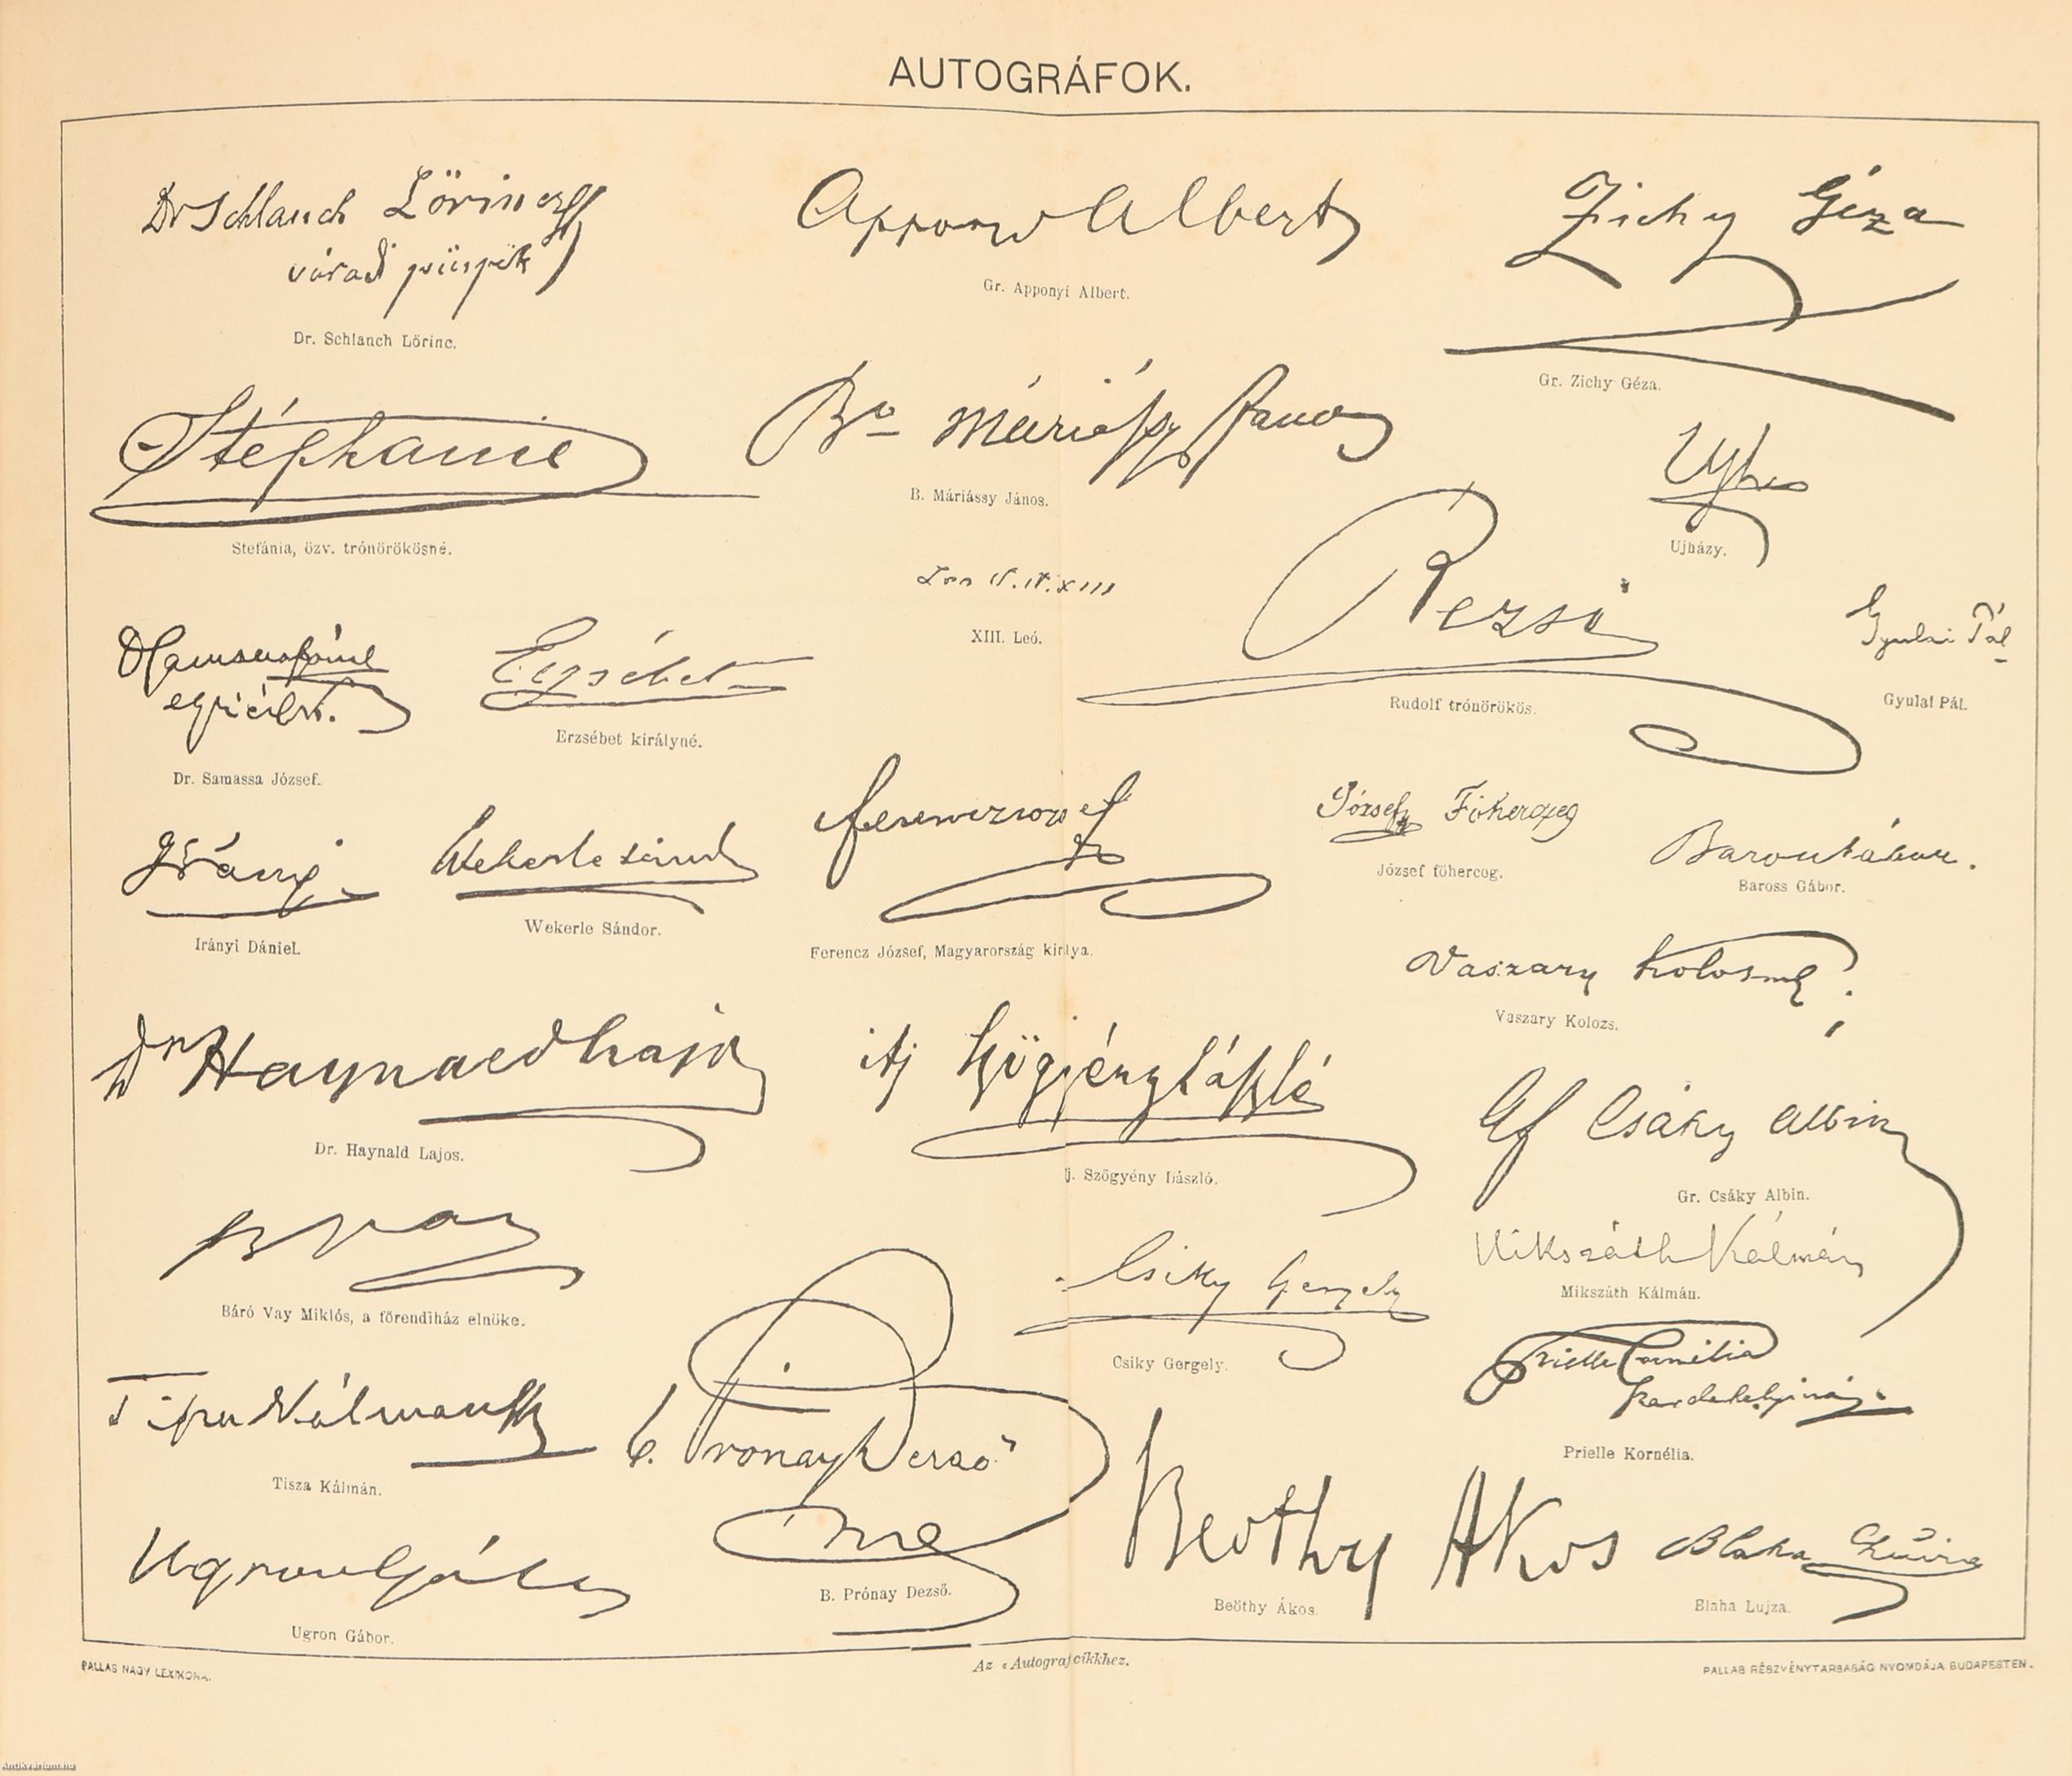 AUTOGRÁFOK.
Dr Schlauch Lőrincz
váradi püspök
Dr. Schlanch Lőrinc.
Apponyi Albert
Gr. Apponyi Albert.
Zichy Géza
Gr. Zichy Géza.
Stéphanie
Stefánia, özv. trónörökösné.
Br Máriássy János
B. Máriássy János.
Ujházy.
Leo P.P. XIII
XIII. Leó.
Rezső
Rudolf trónörökös.
Gyulai Pál
Gyulai Pál.
egri érsek.
Dr. Samassa József.
Erzsébet
Erzsébet királyné.
Irányi
Irányi Dániel.
Wekerle Sándor
Wekerle Sándor.
Ferencz József
Ferencz József, Magyarország királya.
József Főherczeg
József főherceg.
Baross Gábor.
Baross Gábor.
Vaszary Kolos
Vaszary Kolozs.
Dr Haynald Lajos
Dr. Haynald Lajos.
ifj Szögyény László
ij. Szögyény László.
Gf Csáky Albin
Gr. Csáky Albin.
B Vay
Báró Vay Miklós, a főrendiház elnöke.
Csiky Gergely
Csiky Gergely.
Mikszáth Kálmán
Mikszáth Kálmán.
Tisza Kálmán
Tisza Kálmán.
b. Prónay Dezső
B. Prónay Dezső.
Prielle Cornélia
Prielle Kornélia.
Ugron Gábor
Ugron Gábor.
Beöthy Akos
Beöthy Ákos.
Blaha Lujza
Blaha Lujza.
PALLAS NAGY LEXIKONA.
Az «Autograf cikkhez.
PALLAS RÉSZVÉNYTARSASÁG NYOMDÁJA BUDAPESTEN.
Antikvarium.hu